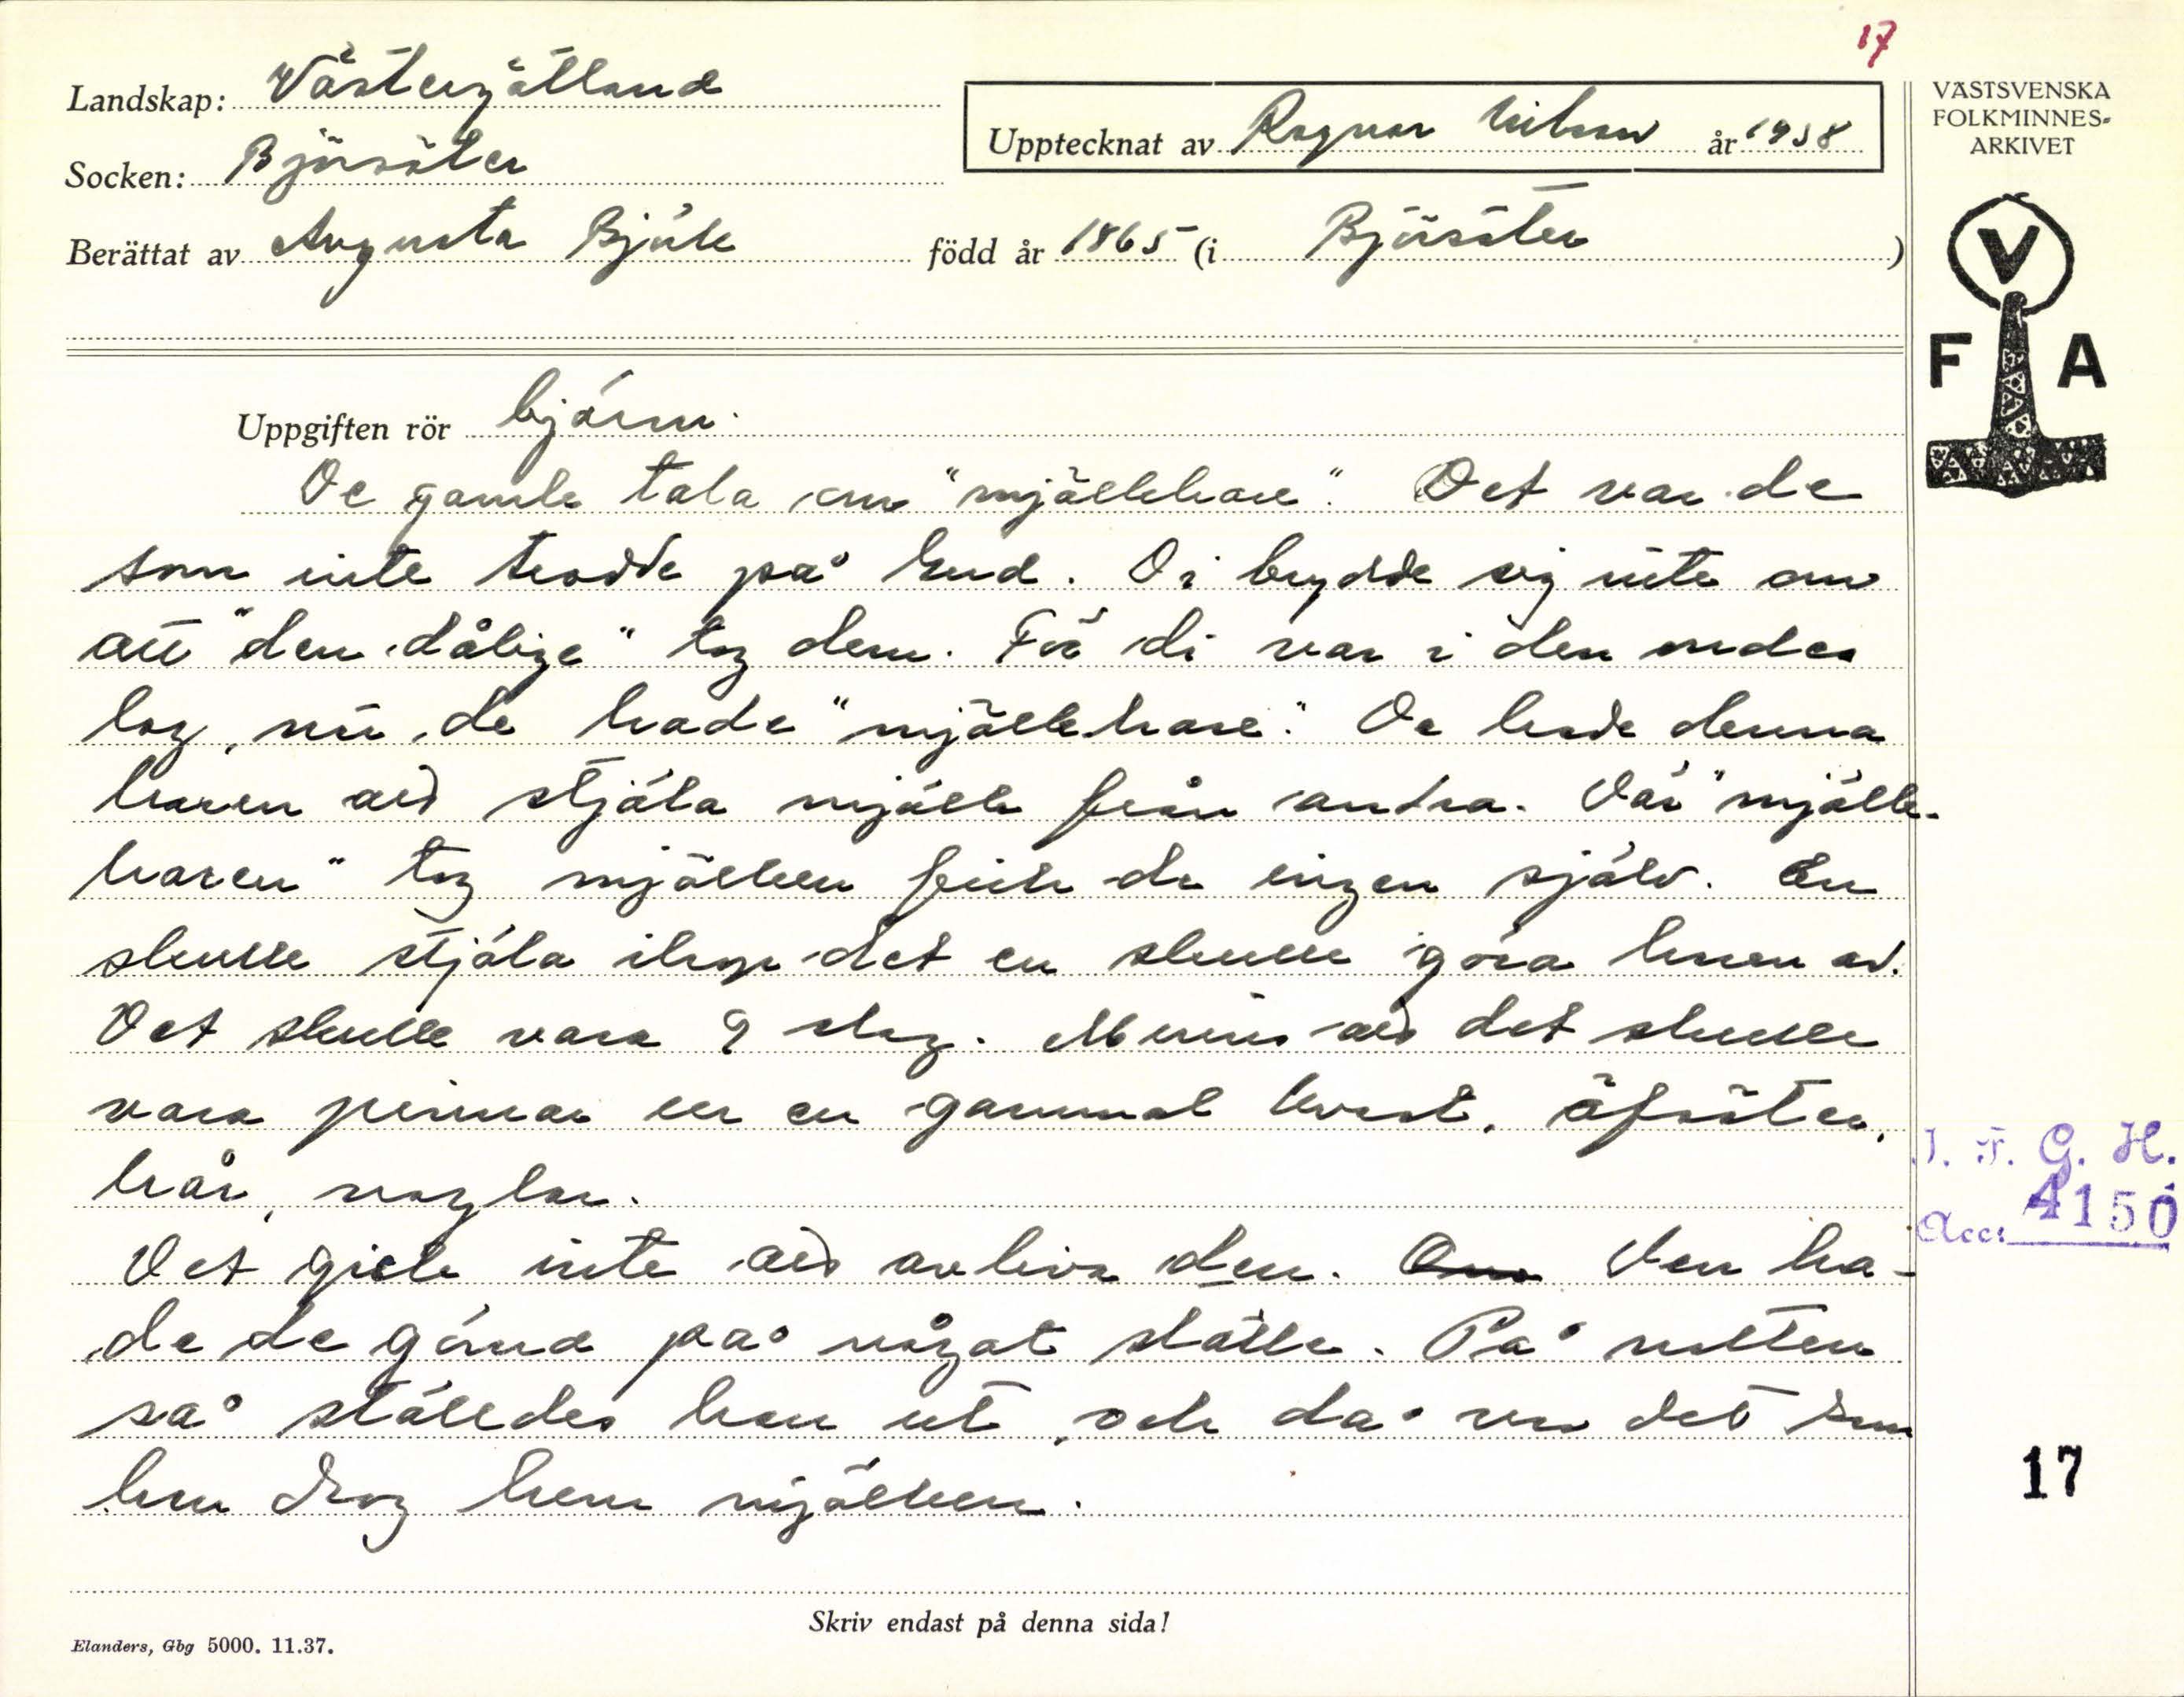 17
Landskap: Västergötland
Upptecknat av Ragnar Nilsson år 1938
Socken: Björsäter
Berättat av Augusta Björk född år 1865 (i Björsäter)
VÄSTSVENSKA
FOLKMINNES-
ARKIVET
V
F A
Uppgiften rör bjärn.
De gamle tala om "mjölkhare". Det var de
som inte trodde på Gud. Di brydde sig inte om
att "den dålige" tog dem. För di var i den ondes
lag, när de hade "mjölkhare". De hade denna
haren att stjäla mjölk från andra. Där "mjölk-
haren" tog mjölken fick de ingen själv. En
skulle stjäla ihop det en skulle göra haren av.
Det skulle vara 9 slag. Minns att det skulle
vara pinnar ur en gammal kvast, äfsöter,
hår, naglar.
Det gick inte att avliva den. Den ha-
de de gömd på något ställe. På natten
så ställdes han ut, och då var det som
han drog hem mjölken.
I. F. G. H.
Acc: 4150
17
Skriv endast på denna sida!
Elanders, Gbg 5000. 11.37.